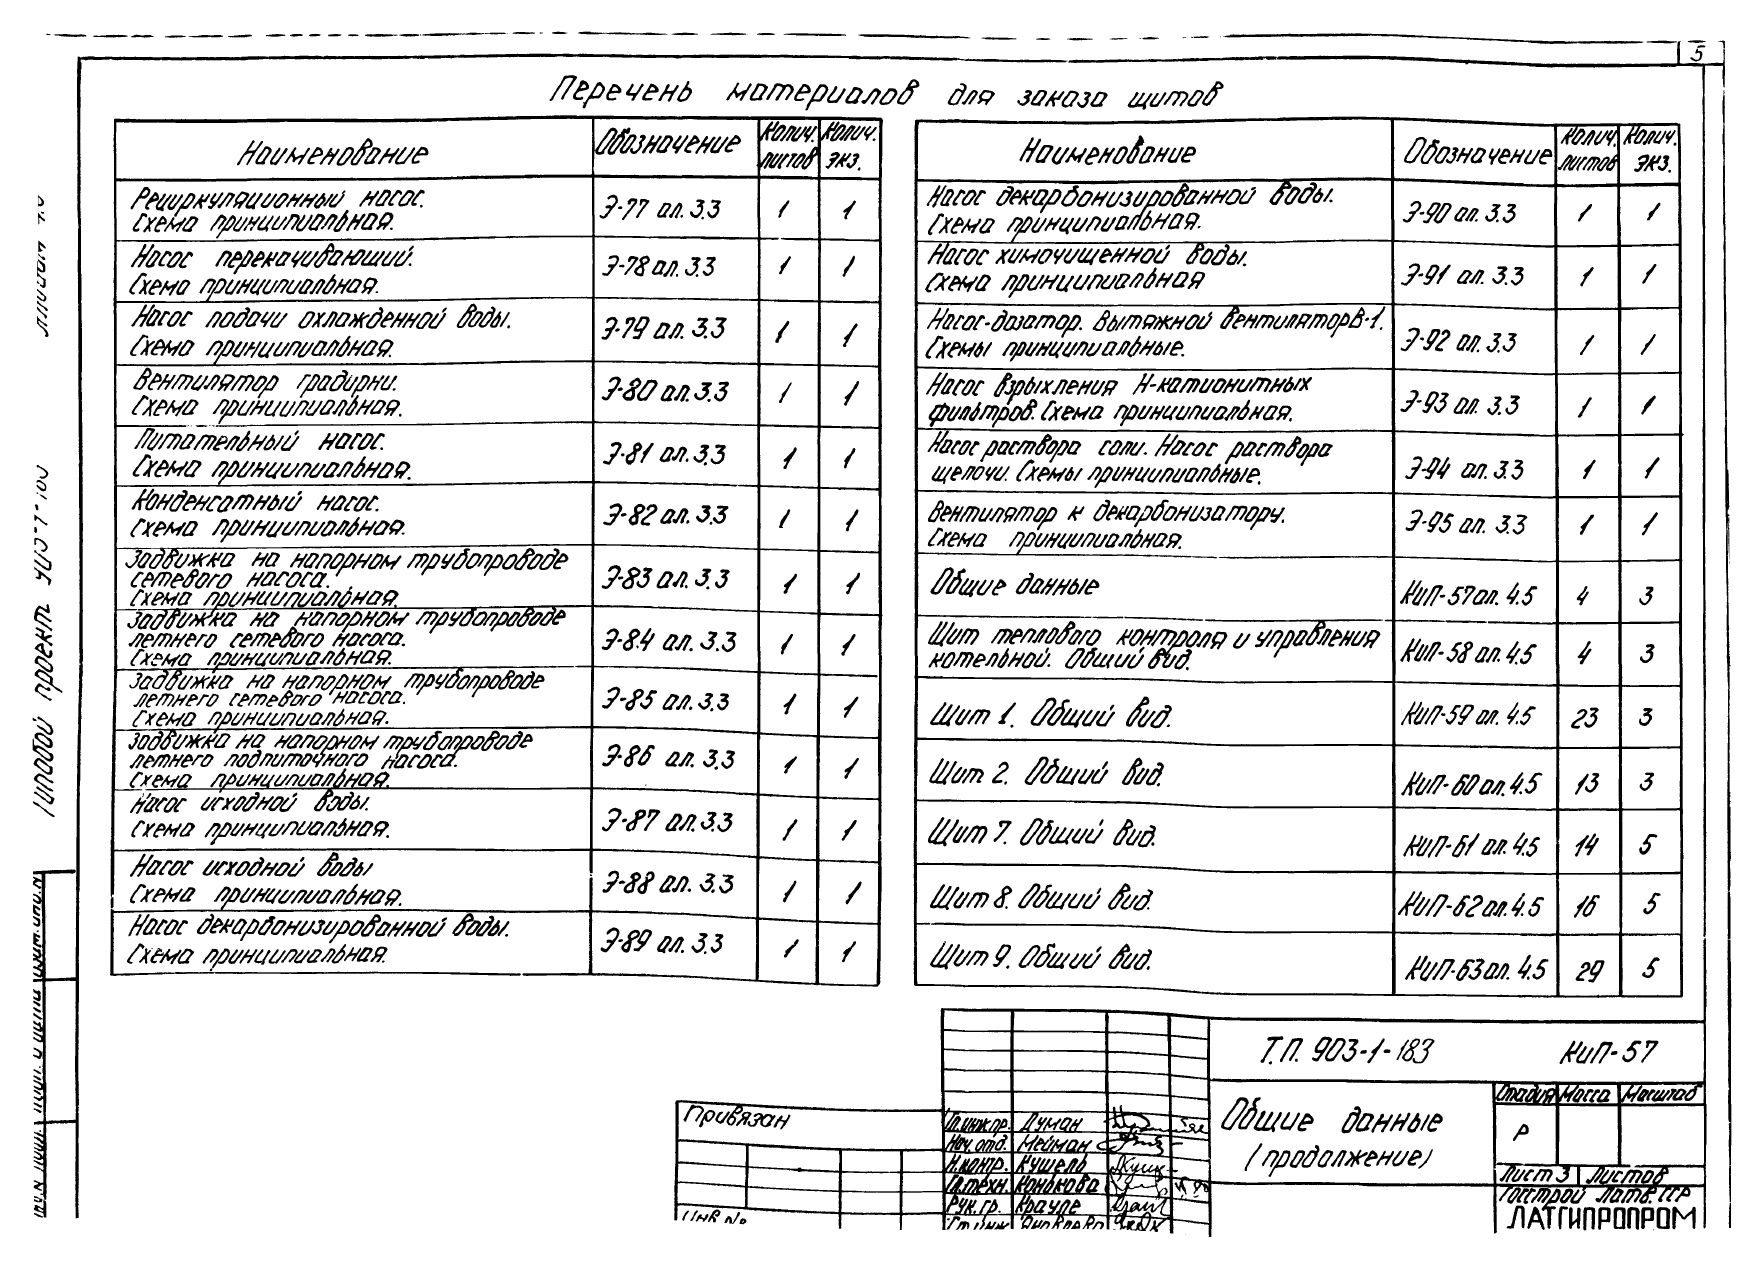 5
Перечень материалов для заказа щитов
Наименование Обозначение Колич. листов Колич. экз.
Рециркуляционный насос.
Схема принципиальная. Э-77 ал. 3.3 1 1
Насос перекачивающий.
Схема принципиальная. Э-78 ал. 3.3 1 1
Насос подачи охлажденной воды.
Схема принципиальная. Э-79 ал. 3.3 1 1
Вентилятор градирни.
Схема принципиальная. Э-80 ал. 3.3 1 1
Питательный насос.
Схема принципиальная. Э-81 ал. 3.3 1 1
Конденсатный насос.
Схема принципиальная. Э-82 ал. 3.3 1 1
Задвижка на напорном трубопроводе
сетевого насоса.
Схема принципиальная. Э-83 ал. 3.3 1 1
Задвижка на напорном трубопроводе
летнего сетевого насоса.
Схема принципиальная. Э-84 ал. 3.3 1 1
Задвижка на напорном трубопроводе
летнего сетевого насоса.
Схема принципиальная. Э-85 ал. 3.3 1 1
Задвижка на напорном трубопроводе
летнего подпиточного насоса.
Схема принципиальная. Э-86 ал. 3.3 1 1
Насос исходной воды.
Схема принципиальная. Э-87 ал. 3.3 1 1
Насос исходной воды
Схема принципиальная. Э-88 ал. 3.3 1 1
Насос декарбонизированной воды.
Схема принципиальная. Э-89 ал. 3.3 1 1
Наименование Обозначение Колич. листов Колич. экз.
Насос декарбонизированной воды.
Схема принципиальная. Э-90 ал. 3.3 1 1
Насос химочищенной воды.
Схема принципиальная Э-91 ал. 3.3 1 1
Насос-дозатор. Вытяжной вентилятор В-1.
Схемы принципиальные. Э-92 ал. 3.3 1 1
Насос взрыхления Н-катионитных
фильтров. Схема принципиальная. Э-93 ал. 3.3 1 1
Насос раствора соли. Насос раствора
щелочи. Схемы принципиальные. Э-94 ал. 3.3 1 1
Вентилятор к декарбонизатору.
Схема принципиальная. Э-95 ал. 3.3 1 1
Общие данные КиП-57 ал. 4.5 4 3
Щит теплового контроля и управления
котельной. Общий вид. КиП-58 ал. 4.5 4 3
Щит 1. Общий вид. КиП-59 ал. 4.5 23 3
Щит 2. Общий вид. КиП-60 ал. 4.5 13 3
Щит 7. Общий вид. КиП-61 ал. 4.5 14 5
Щит 8. Общий вид. КиП-62 ал. 4.5 16 5
Щит 9. Общий вид. КиП-63 ал. 4.5 29 5
Т.П. 903-1-183 КиП-57
Общие данные
(продолжение)
Стадия Масса Масштаб
Р
Лист 3 Листов
Госстрой Латв. ССР
ЛАТГИПРОПРОМ
Привязан
Гл.инж.пр. Думан
Нач.отд. Мейман
Н.контр. Кушель
Гл.техн. Конькова
Рук.гр. Крауле